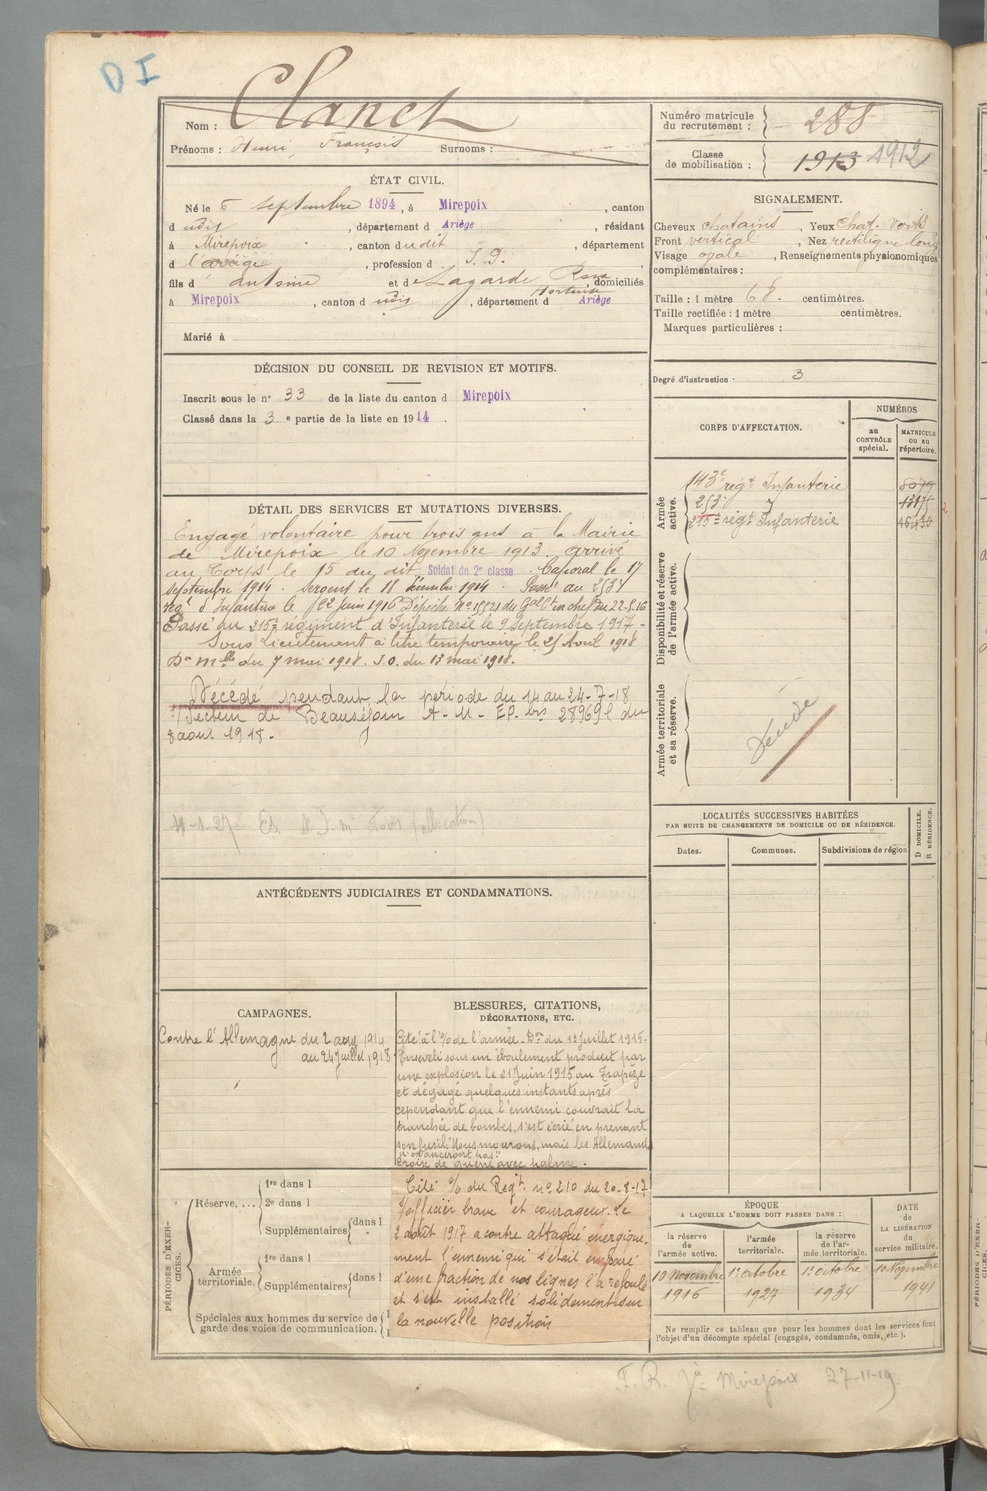 D I
Nom : Clanet
Prénoms : Henri, François Surnoms :
Numéro matricule du recrutement : 288
Classe de mobilisation : 1913 1912
ÉTAT CIVIL.
Né le 5 septembre 1894, à Mirepoix, canton
d udit, département d Ariège, résidant
à Mirepoix, canton dudit, département
d l'ariège, profession d
fils d antoine et de Lagarde Rosa Hortense, domiciliés
à Mirepoix, canton d udit, département d Ariège
Marié à
SIGNALEMENT.
Cheveux chatains, Yeux chat. verts
Front vertical, Nez rectiligne long
Visage ovale, Renseignements physionomiques
complémentaires :
Taille : 1 mètre 68. centimètres.
Taille rectifiée : 1 mètre centimètres.
Marques particulières :
Degré d'instruction : 3
DÉCISION DU CONSEIL DE REVISION ET MOTIFS.
Inscrit sous le n° 33 de la liste du canton d Mirepoix
Classé dans la 3 e partie de la liste en 1914.
DÉTAIL DES SERVICES ET MUTATIONS DIVERSES.
Engagé volontaire pour trois ans à la Mairie
de Mirepoix le 10 Novembre 1913. arrivé
au Corps le 15 du dit, Soldat de 2e classe. Caporal le 17
septembre 1914. Sergent le 18 décembre 1914 Passé au 253e
reg.t d'Infanterie le 1er juin 1916 Dépêche du Gal en chef du 22-5-16
Passé au 215e régiment d'Infanterie le 9 Septembre 1917 -
Sous Lieutenant à titre temporaire le 25 Avril 1918
Don mlle du 7 mai 1918. J.O. du 13 mai 1918.
Décédé pendant la période du 14 au 24-7-18
Secteur de Beauséjour A - M - E.P. bis 28969 du
8 aout 1918 -
CORPS D'AFFECTATION.
NUMÉROS
au CONTRÔLE spécial.
MATRICULE ou au répertoire.
Armée active.
143e regt Infanterie 8079
253e
215e régt Infanterie
Disponibilité et réserve de l'armée active.
Armée territoriale et sa réserve.
LOCALITÉS SUCCESSIVES HABITÉES
PAR SUITE DE CHANGEMENTS DE DOMICILE OU DE RÉSIDENCE.
Dates.
Communes.
Subdivisions de région
D DOMICILE.
R RÉSIDENCE.
ANTÉCÉDENTS JUDICIAIRES ET CONDAMNATIONS.
CAMPAGNES.
Contre l'Allemagne du 2 aout 1914
au 24 juillet 1918
BLESSURES, CITATIONS,
DÉCORATIONS, ETC.
Cité à l'o/ de l'armée. Don du 12 Juillet 1915.
Enseveli sous un éboulement produit par
une explosion le 21 Juin 1915 au Trapèze
et dégagé quelques instants après
cependant que l'ennemi couvrait la
tranchée de bombes, s'est écrié en prenant
son fusil: Nous mourons, mais les Allemands
n'avanceront pas"
Croix de guerre avec palme.
Cité o/ du Regt. n° 210 du 20-8-17
officier brave et courageux. le
2 août 1917 a contre attaqué énergique-
ment l'ennemi qui s'était emparé
d'une fraction de nos lignes l'a refoulé
et s'est installé solidement sur
la nouvelle position
PÉRIODES D'EXERCICES.
Réserve....
1re dans l
2e dans l
Supplémentaires dans l
Armée territoriale.
1re dans l
Supplémentaires dans l
Spéciales aux hommes du service de
garde des voies de communication.
ÉPOQUE
A LAQUELLE L'HOMME DOIT PASSER DANS :
la réserve de l'armée active.
l'armée territoriale.
la réserve de l'armée territoriale.
DATE de LA LIBÉRATION du service militaire.
10 Novembre 1916
1er octobre 1927
1er octobre 1934
10 Novembre 1941
Ne remplir ce tableau que pour les hommes dont les services font
l'objet d'un décompte spécial (engagés, condamnés, omis, etc.).
F. R. Mirepoix 27-11-19.